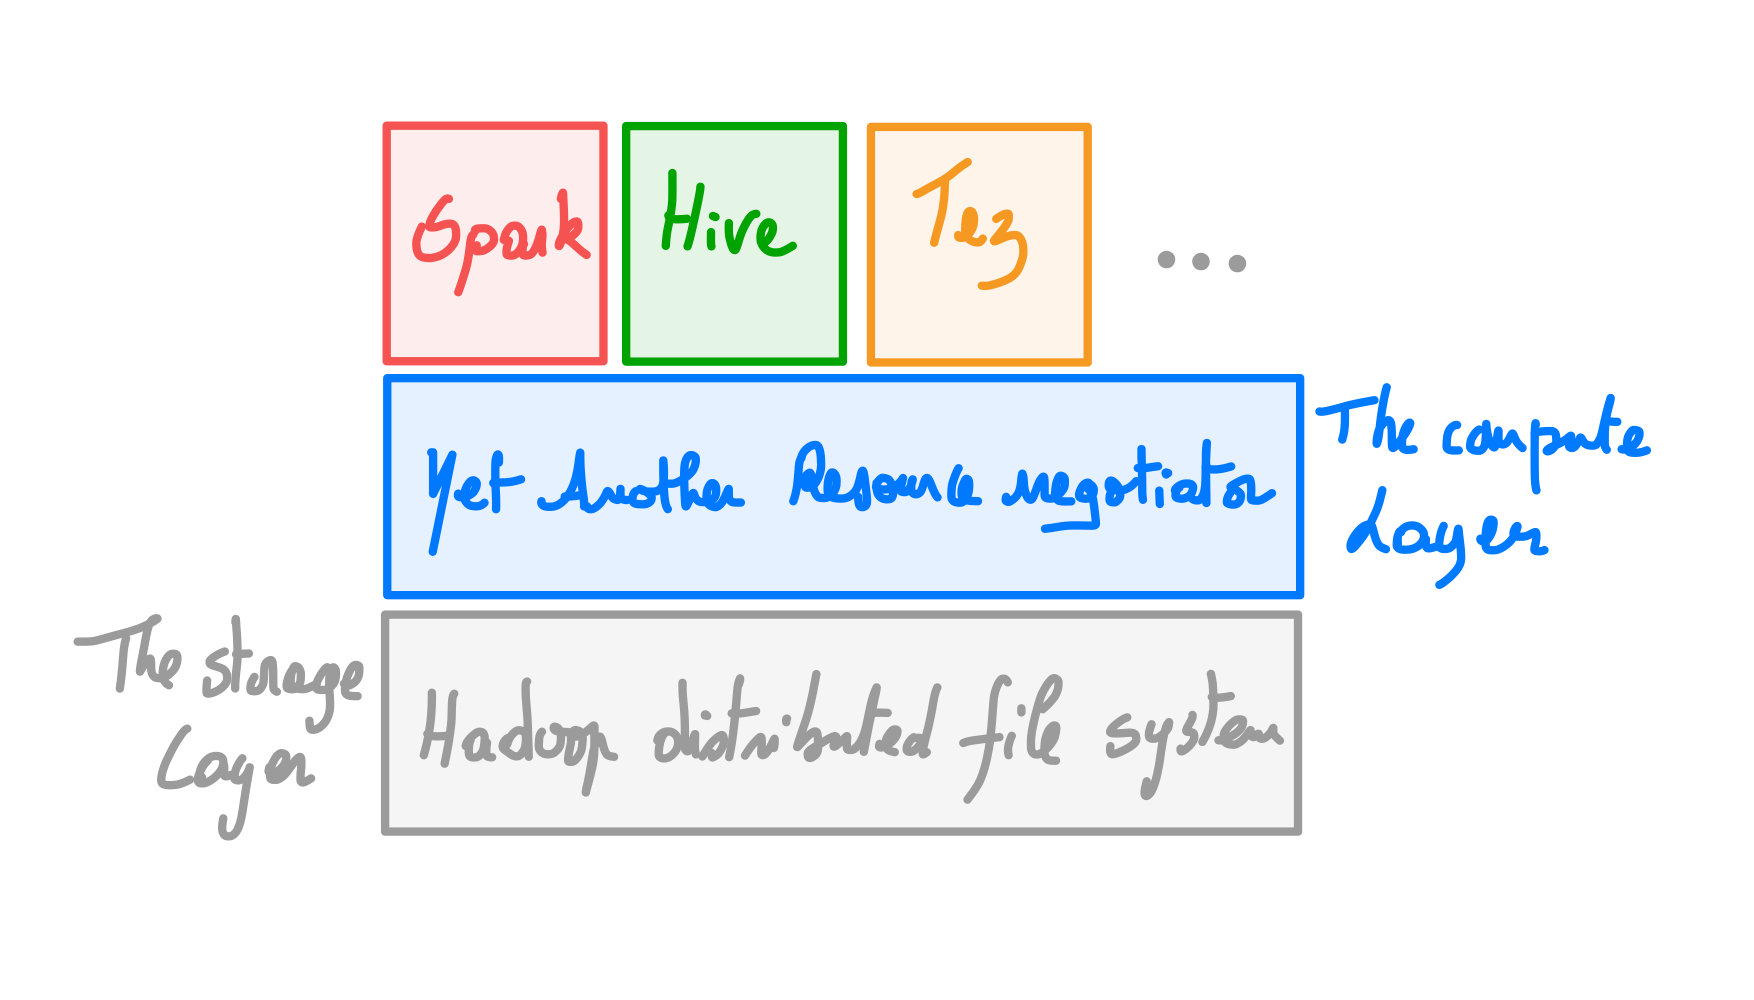 Spark
Hive
Tez
...
Yet Another Resource negotiator
The compute
Layer
The storage
Layer
Hadoop distributed file system